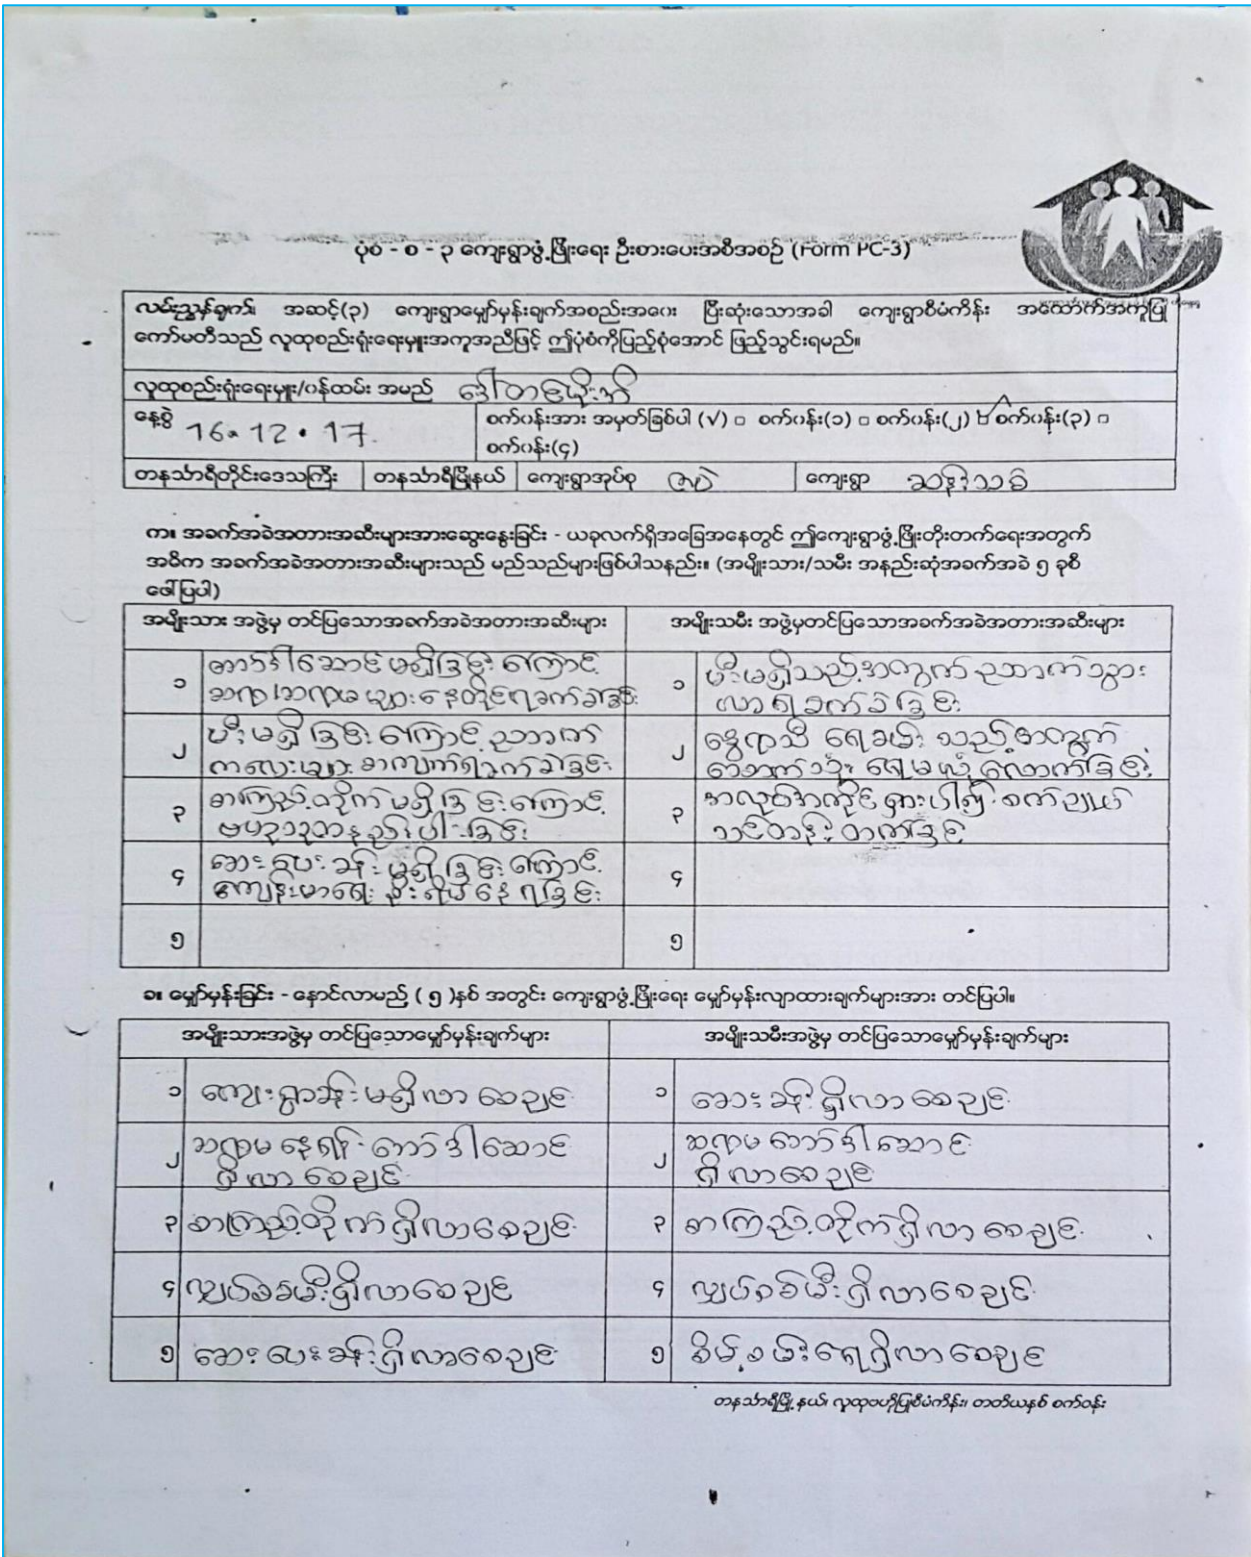 ပုံစံ - စ - ၃ ကျေးရွာဖွံ့ဖြိုးရေး ဦးစားပေးအစီအစဉ် (Form PC-3)
လမ်းညွှန်ချက်၊ အဆင့်(၃) ကျေးရွာမျှော်မှန်းချက်အစည်းအဝေး ပြီးဆုံးသောအခါ ကျေးရွာစီမံကိန်း အထောက်အကူပြု
ကော်မတီသည် လူထုစည်းရုံးရေးမှူးအကူအညီဖြင့် ဤပုံစံကိုပြည့်စုံအောင် ဖြည့်သွင်းရမည်။
လူထုစည်းရုံးရေးမှူး/ဝန်ထမ်း အမည်
နေ့စွဲ 16.12.17. စက်ဝန်းအား အမှတ်ခြစ်ပါ (√) □ စက်ဝန်း(၁) □ စက်ဝန်း(၂) စက်ဝန်း(၃) □
စက်ဝန်း(၄)
တနင်္သာရီတိုင်းဒေသကြီး တနင်္သာရီမြို့နယ် ကျေးရွာအုပ်စု ကျေးရွာ
က။ အခက်အခဲအတားအဆီးများအားဆွေးနွေးခြင်း - ယခုလက်ရှိအခြေအနေတွင် ဤကျေးရွာဖွံ့ဖြိုးတိုးတက်ရေးအတွက်
အဓိက အခက်အခဲအတားအဆီးများသည် မည်သည်များဖြစ်ပါသနည်း။ (အမျိုးသား/သမီး အနည်းဆုံအခက်အခဲ ၅ ခုစီ
ဖေါ်ပြပါ)
အမျိုးသား အဖွဲ့မှ တင်ပြသောအခက်အခဲအတားအဆီးများ အမျိုးသမီး အဖွဲ့မှတင်ပြသောအခက်အခဲအတားအဆီးများ
၁ ဘော်ဒါဆောင်မရှိခြင်းကြောင့် ၁ မီးမရှိသည့်အတွက် ညဘက်သွား
ဆရာ/ဆရာမများနေထိုင်ရခက်ခဲခြင်း လာရခက်ခဲခြင်း
၂ မီးမရှိခြင်းကြောင့်ညဘက် ၂ နွေရာသီ ရေခမ်းသည့်အတွက်
ကလေးများစာကျက်ရခက်ခဲခြင်း ရေမလုံလောက်ခြင်း
၃ စာကြည့်တိုက်မရှိခြင်းကြောင့် ၃ အလုပ်အကိုင်ရှားပါး၍ စက်ချုပ်
ဗဟုသုတနည်းပါးခြင်း သင်တန်းတက်ခြင်
၄ ဆေးပေးခန်းမရှိခြင်းကြောင့် ၄
ကျန်းမာရေးစိုးရိမ်နေရခြင်း
၅ ၅
ခ။ မျှော်မှန်းခြင်း - နောင်လာမည် ( ၅ )နှစ် အတွင်း ကျေးရွာဖွံ့ဖြိုးရေး မျှော်မှန်းလျာထားချက်များအား တင်ပြပါ။
အမျိုးသားအဖွဲ့မှ တင်ပြသောမျှော်မှန်းချက်များ အမျိုးသမီးအဖွဲ့မှ တင်ပြသောမျှော်မှန်းချက်များ
၁ ကျေးရွာခန်းမရှိလာစေချင် ၁ ဆေးခန်းရှိလာစေချင်
၂ ဆရာမနေရန် ဘော်ဒါဆောင် ၂ ဆရာမဘော်ဒါဆောင်
ရှိလာစေချင် ရှိလာစေချင်
၃ စာကြည့်တိုက်ရှိလာစေချင် ၃ စာကြည့်တိုက်ရှိလာစေချင်
၄ လျှပ်စစ်မီးရှိလာစေချင် ၄ လျှပ်စစ်မီးရှိလာစေချင်
၅ ဆေးပေးခန်းရှိလာစေချင် ၅ စိမ့်စမ်းရေရှိလာစေချင်
တနင်္သာရီမြို့နယ်၊ လူထုဗဟိုပြုစီမံကိန်း၊ တတိယနှစ် စက်ဝန်း